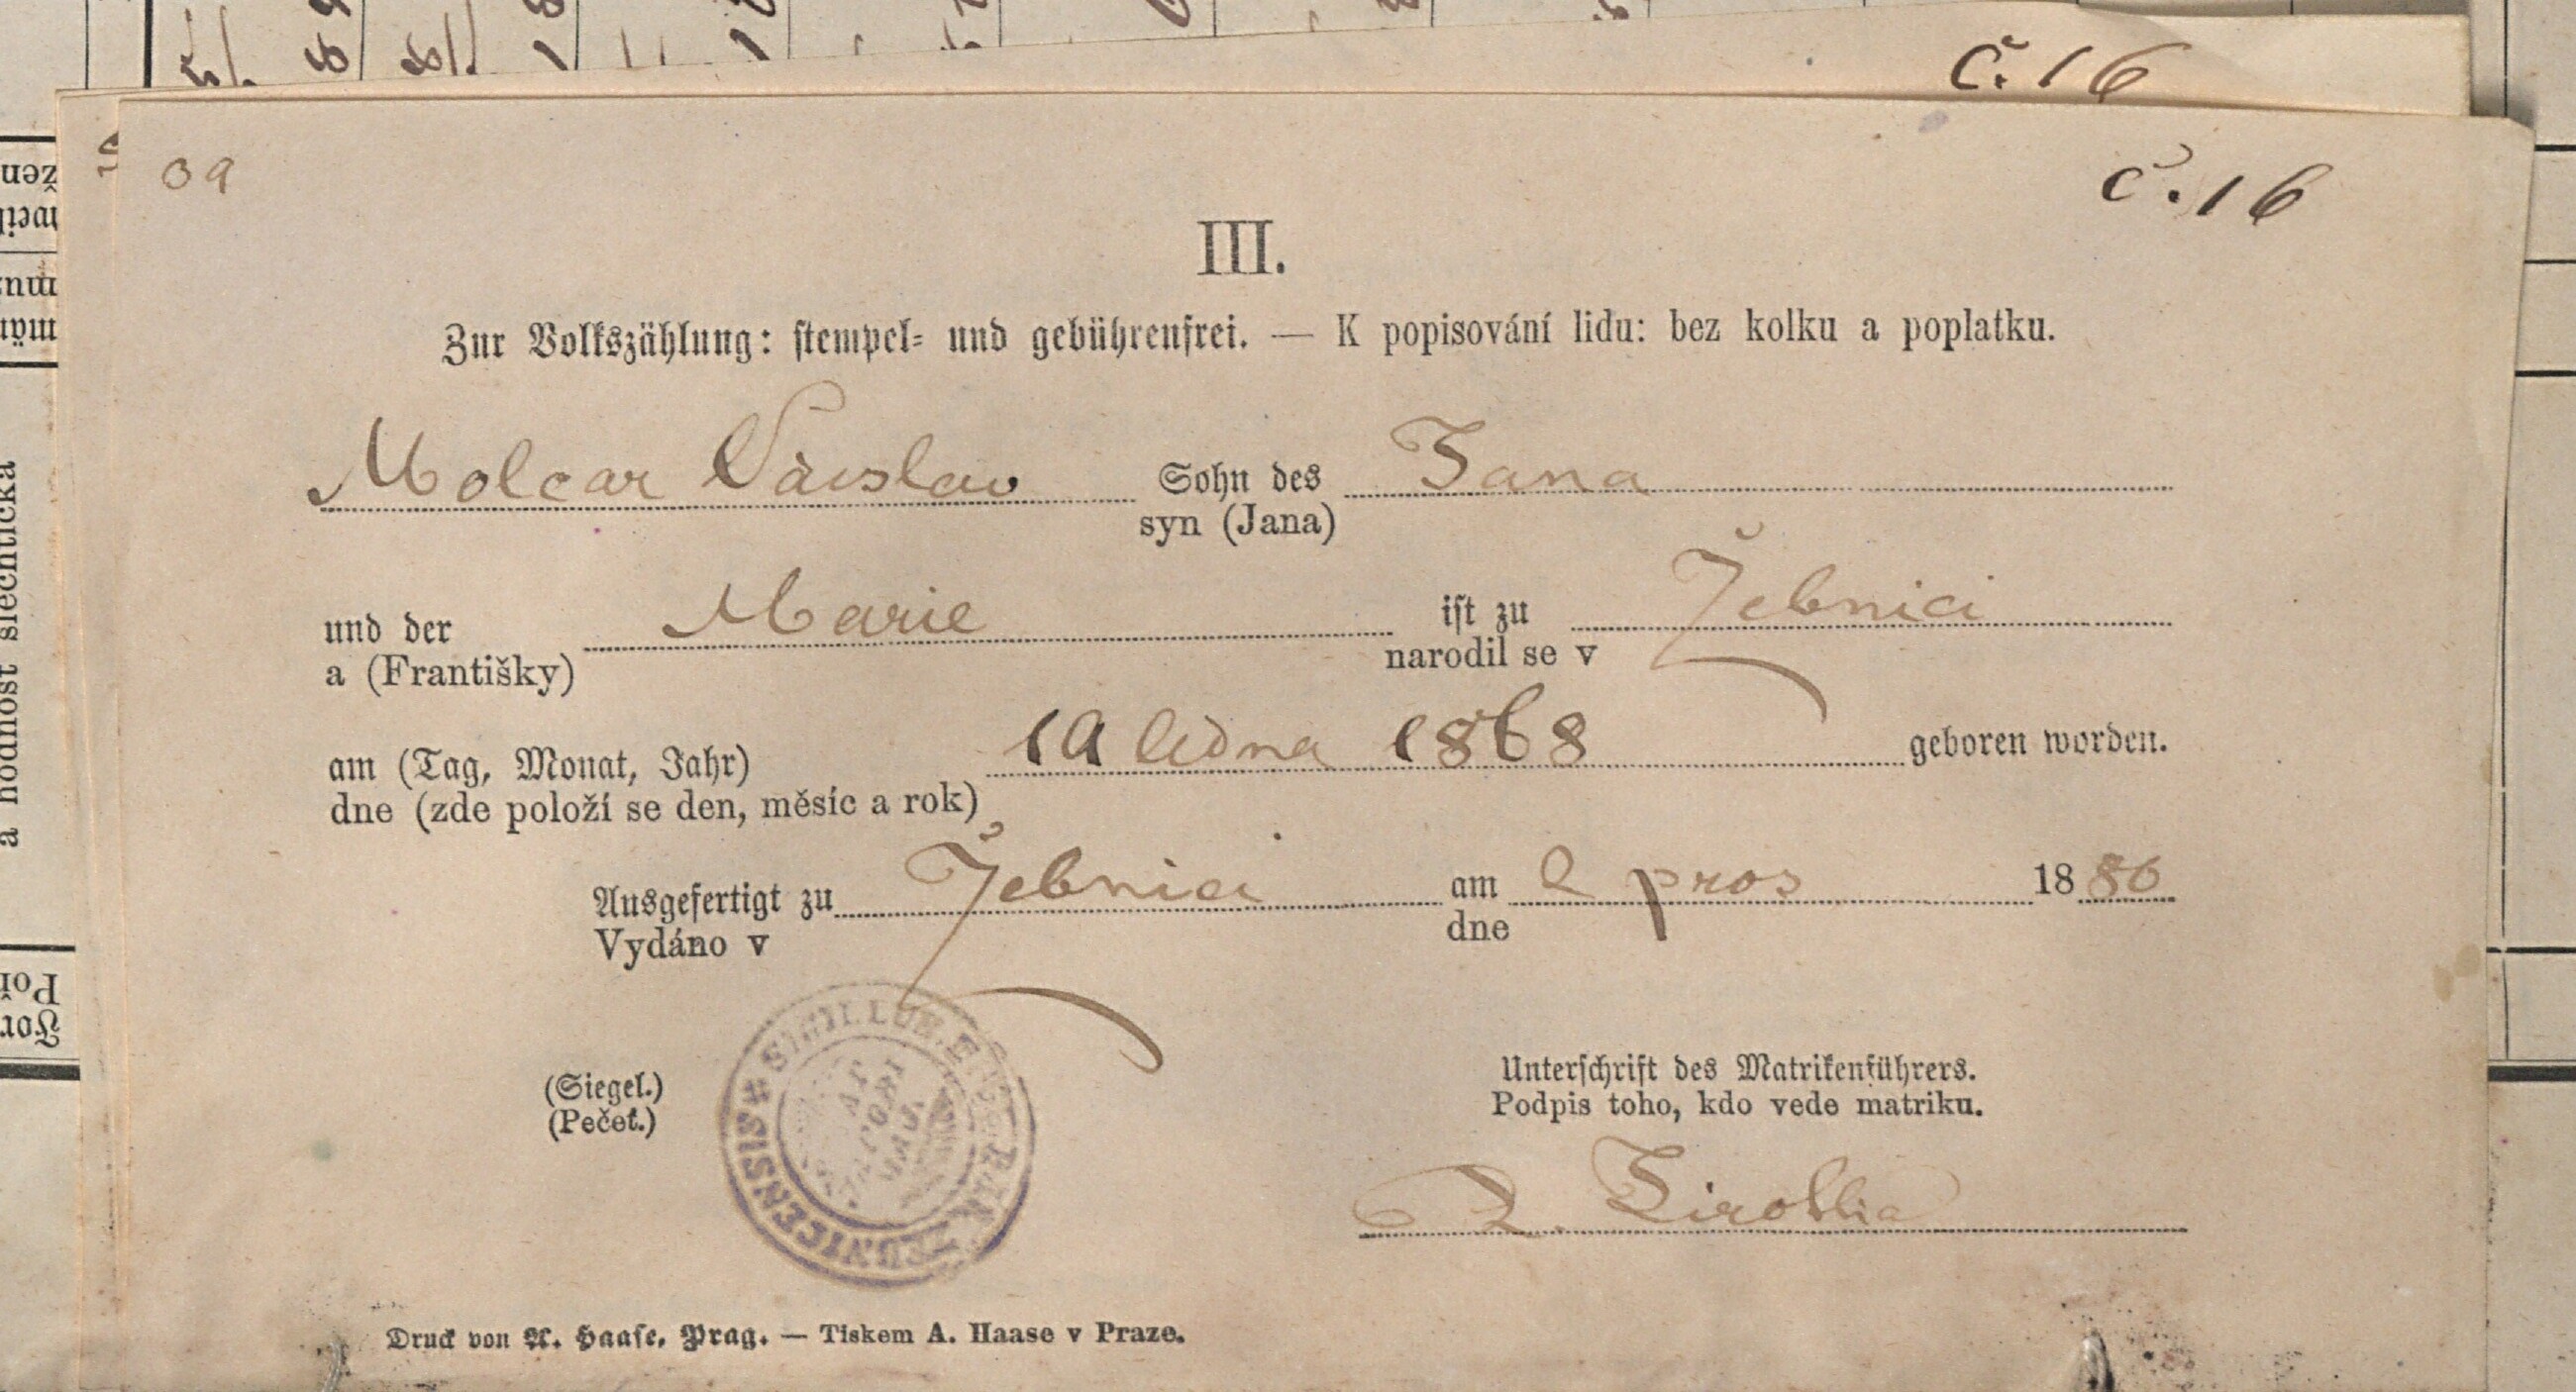 č. 16
09
č. 16
III.
Zur Volkszählung: stempel- und gebührenfrei. — K popisování lidu: bez kolku a poplatku.
Molcar Václav Sohn des Jana
syn (Jana)
und der Marie ist zu Žebnici
a (Františky) narodil se v
am (Tag, Monat, Jahr) 19 ledna 1868 geboren worden.
dne (zde položí se den, měsíc a rok)
Ausgefertigt zu Žebnici am 2 pros 1880
Vydáno v dne
SIGILLUM ZEBNICENSIS
(Siegel.)
(Pečeť.)
Unterschrift des Matrikenführers.
Podpis toho, kdo vede matriku.
Druck von A. Haase, Prag. — Tiskem A. Haase v Praze.